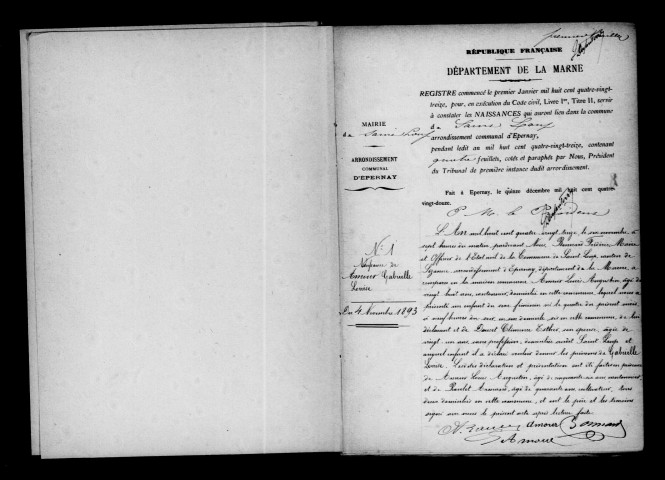 RÉPUBLIQUE FRANÇAISE
DÉPARTEMENT DE LA MARNE
REGISTRE commencé le premier Janvier mil huit cent quatre-vingt-
treize, pour, en exécution du Code civil, Livre Ier, Titre II, servir
à constater les NAISSANCES qui auront lieu dans la commune
de Saint Loup
arrondissement communal d'Epernay,
pendant ledit an mil huit cent quatre-vingt-treize, contenant
feuillets, cotés et paraphés par Nous, Président
du Tribunal de première instance dudit arrondissement.
Fait à Epernay, le quinze décembre mil huit cent quatre-
vingt-douze.
P. M. le Président
MAIRIE
de Saint Loup
ARRONDISSEMENT
COMMUNAL
D'ÉPERNAY
N° 1
Naissance de
Amour Gabrielle
Louise
Du 4 novembre 1893
L'An mil huit cent quatre vingt treize, le six novembre à
sept heures du matin pardevant Nous, Maire
et Officier de l'Etat civil de la Commune de Saint Loup, canton de
Sézanne arrondissement d'Epernay, département de la Marne, a
comparu en la maison commune Amour Louis Augustin, âgé de
vingt huit ans, cantonnier, domicilié en cette commune, lequel nous a
présenté un enfant du sexe féminin né le quatre du présent mois,
à neuf heures du soir en son domicile, sis en cette commune, de lui
déclarant et de Clémence Esther, son épouse, âgée de
vingt un ans, sans profession, domiciliée audit Saint Loup et
auquel enfant il a déclaré vouloir donner les prénoms de Gabrielle
Louise. Lesdites déclaration et présentation ont été faites en présence
de Amour Louis Augustin, âgé de cinquante six ans cantonnier
et de Amand, âgé de quarante ans, cultivateur, tous
deux domiciliés en cette commune, et ont le père et les témoins
signé avec nous le présent acte après lecture faite.
Amour
Amour